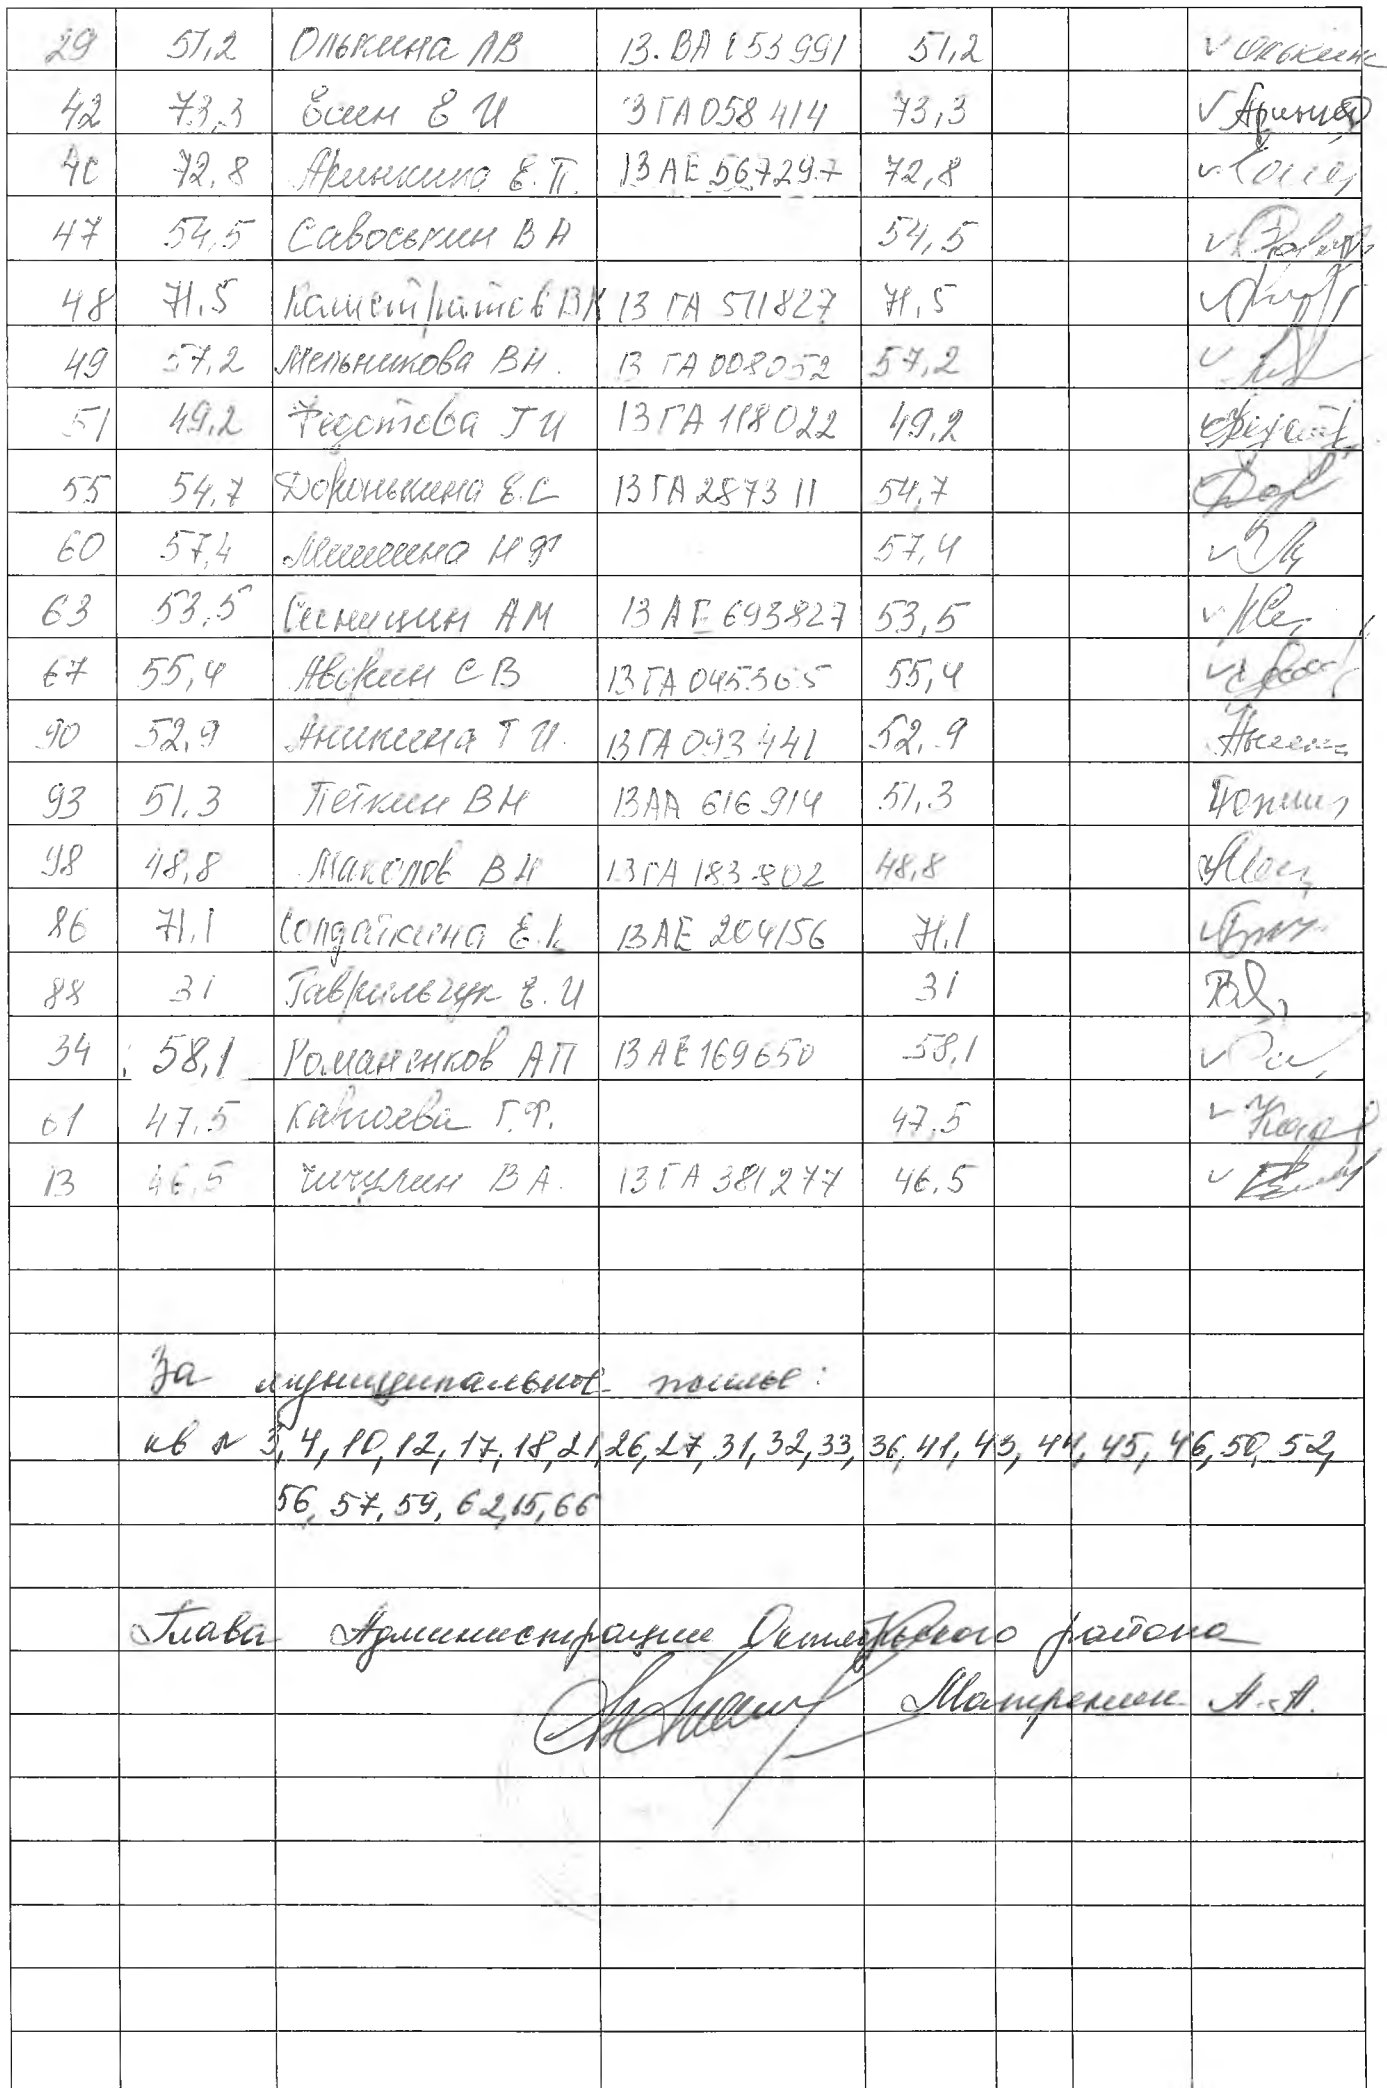 29 51,2 Олькина ЛВ 13. ВА 153991 51,2 ✓ Олькина
42 73,3 Есин Е И 3 ГА 058 414 73,3 ✓
40 72,8 Аринкина Е.П. 13 АЕ 567297 72,8 ✓
47 54,5 Савоськин В Н 54,5 ✓
48 71,5 13 ГА 511827 71,5 ✓
49 57,2 Мельникова ВН. 13 ГА 008052 57,2 ✓
51 49,2 Федотова Т И 13 ГА 118022 49,2
55 54,7 Доронькина Е.С 13 ГА 287311 54,7
60 57,4 Мишина Н Ф 57,4 ✓
63 53,5 Сесницин АМ 13 АЕ 693827 53,5 ✓
67 55,4 Авокин С В 13 ГА 045365 55,4 ✓
90 52,9 Аникина Т И. 13 ГА 093 441 52,9
93 51,3 Петкин ВН 13 АА 616 914 51,3
98 48,8 Маколов В Н 13 ГА 183 802 48,8
86 71,1 Солдаткина Е.К 13 АЕ 204156 71,1 ✓
88 31 Гаврильчук Е.И 31
34 58,1 Романенков АП 13 АЕ 169650 58,1 ✓
61 47,5 Г.Ф. 47,5 ✓
13 46,5 Чичулин В А. 13 ГА 381277 46,5 ✓
За муниципальное жилье:
кв № 3, 4, 10, 12, 17, 18, 21, 26, 27, 31, 32, 33, 36, 41, 43, 44, 45, 46, 50, 52,
56, 57, 59, 62, 15, 66
Глава Администрации Октябрьского района
Матрекин А.А.